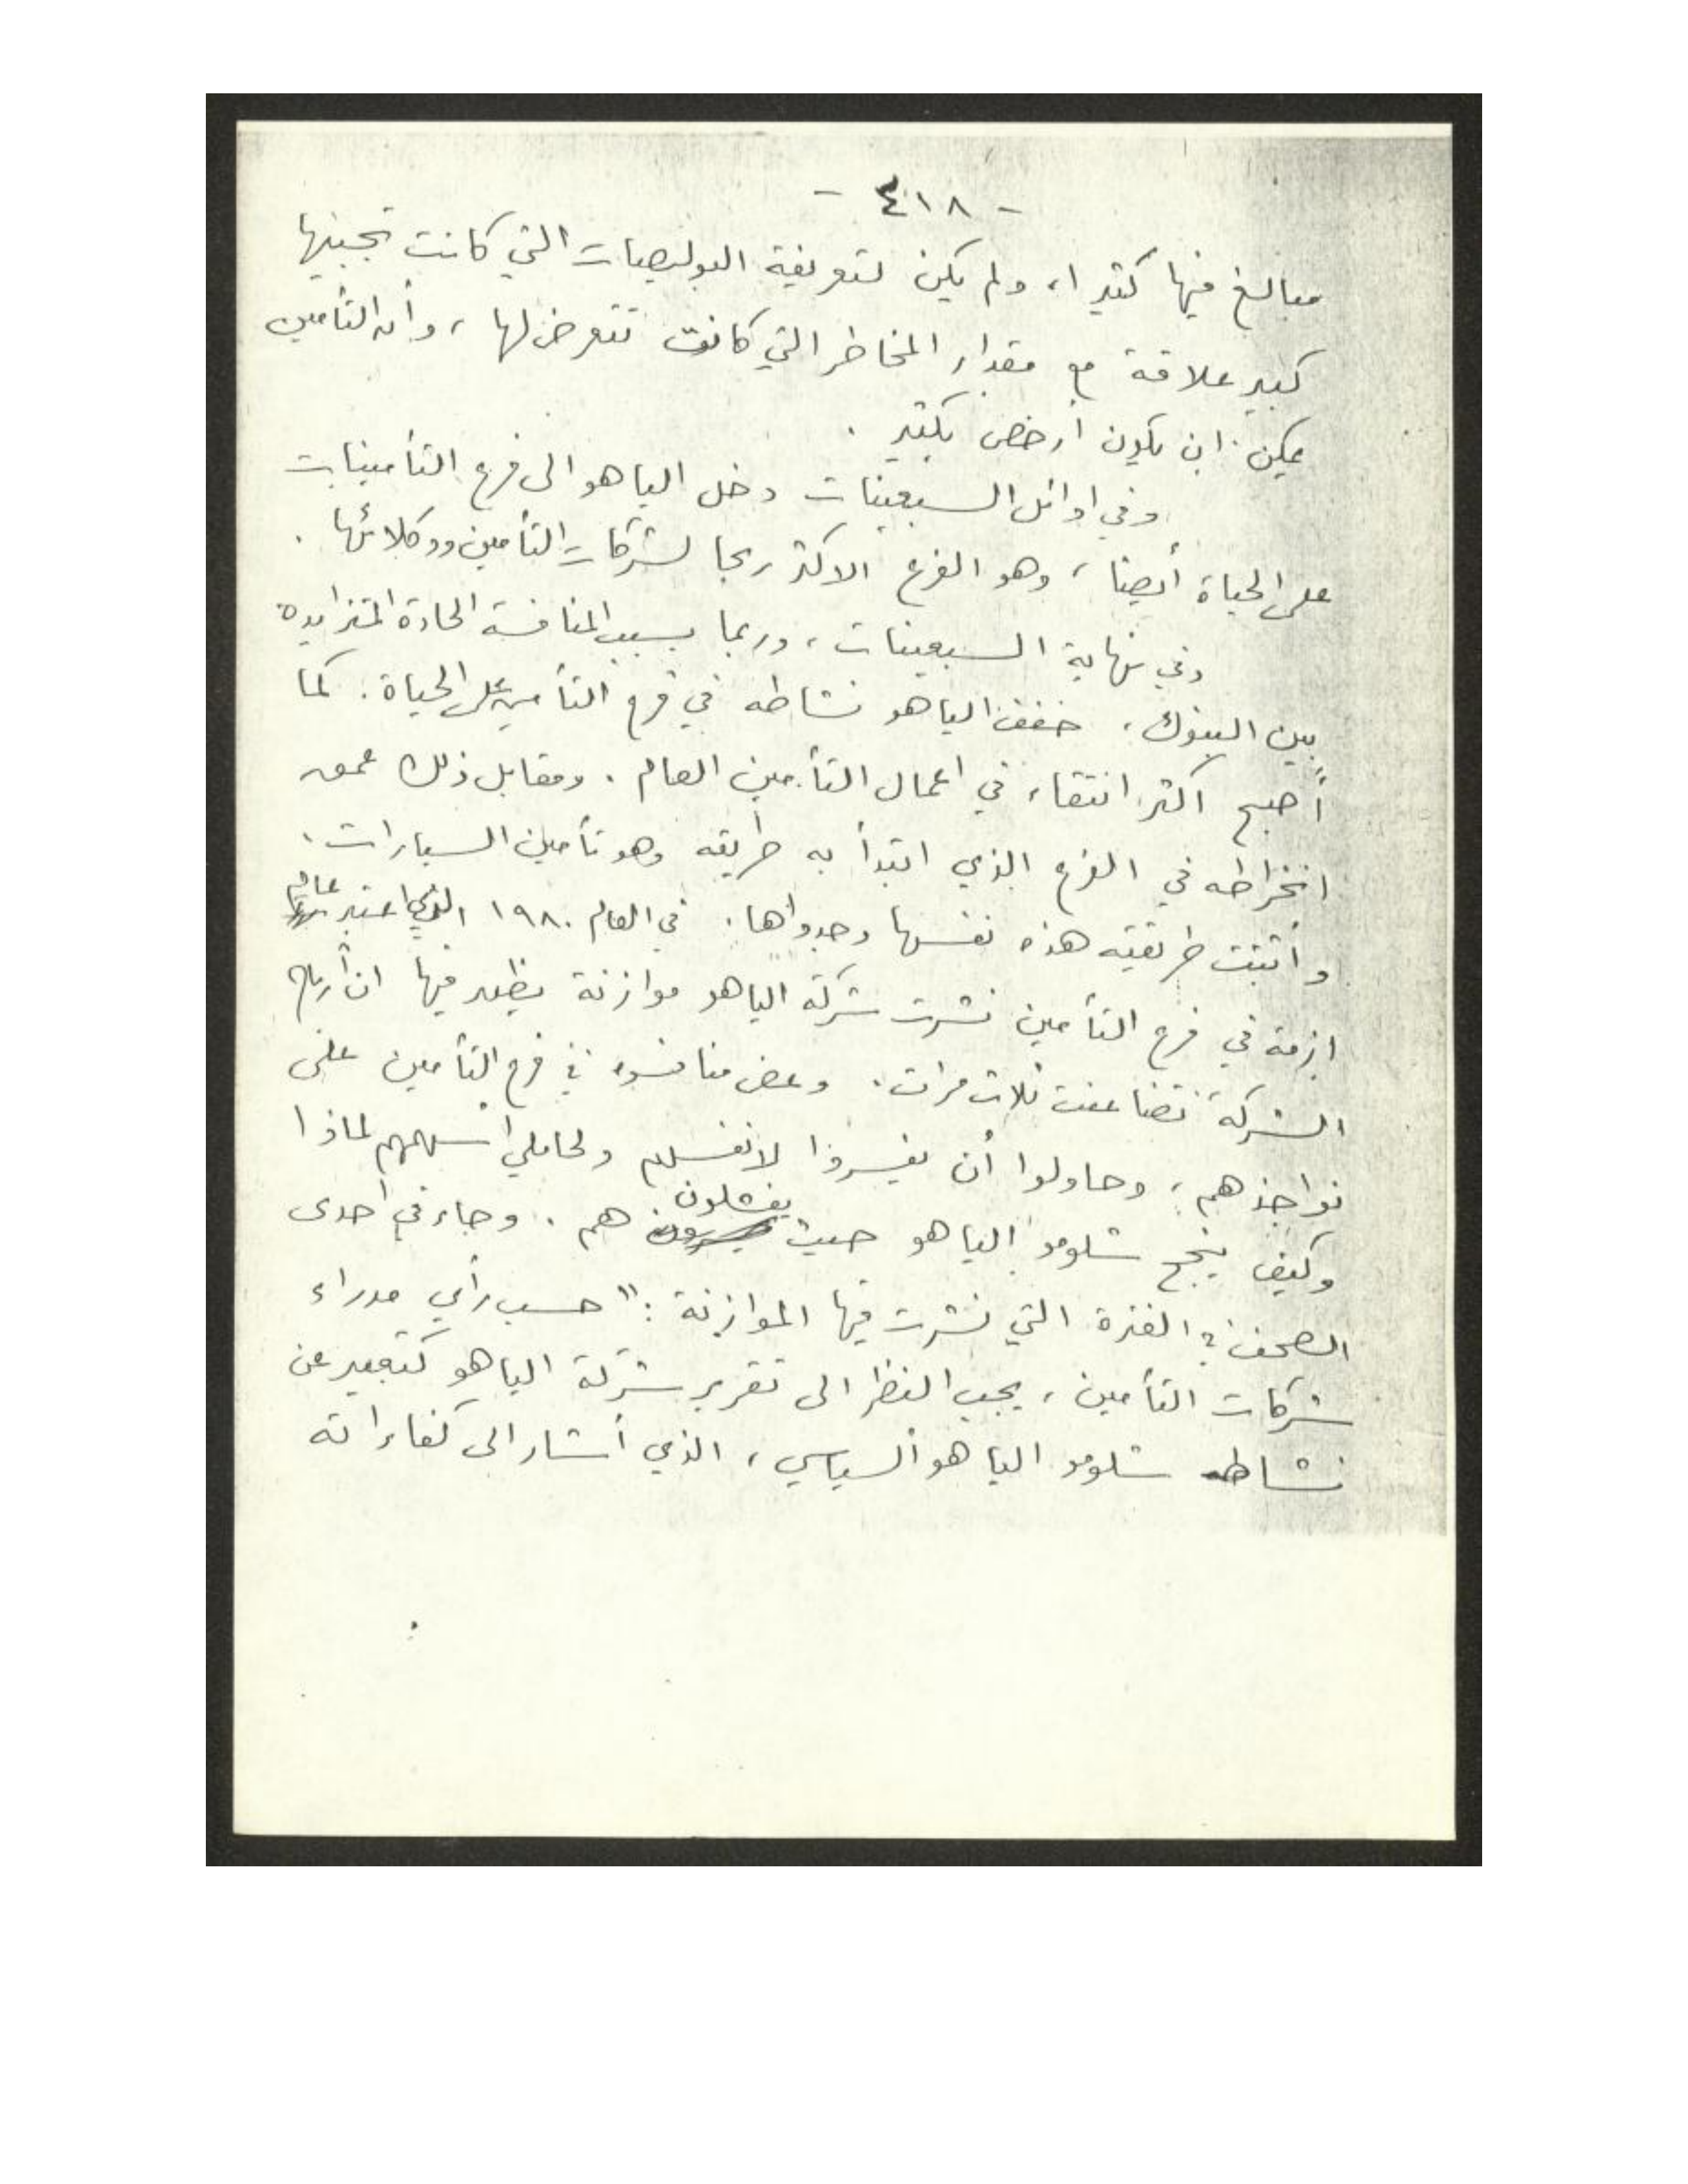 - ٤١٨ -
مبالغ فيها كثيرا، ولم يكن لتعريفة البوليصات التي كانت تجبيها
كبير علاقة مع مقدار المخاطر التي كانت تتعرض لها ، وأن التأمين
يمكن ان يكون أرخص بكثير .
وفي اوائل السبعينات دخل الياهو الى فرع التأمينات
على الحياة أيضا ، وهو الفرع الاكثر ربحا لشركات التأمين ووكلائها .
وفي نهاية السبعينات ، وربما بسبب المنافسة الحادة المتزايدة
بين البنوك ، خفف الياهو نشاطه في فرع التأمين على الحياة . كما
أصبح اكثر انتقاء في اعمال التأمين العام . ومقابل ذلك عمق
انخراطه في الفرع الذي ابتدأ به طريقه وهو تأمين السيارات .
وأثبتت طريقته هذه نفسها وجدواها . في العام ١٩٨٠ الذي اعتبر عام
ازمة في فرع التأمين نشرت شركة الياهو موازنة يظهر فيها ان أرباح
الشركة تضاعفت ثلاث مرات . وعض منافسوه في فرع التأمين على
نواجذهم ، وحاولوا أن يفسروا لانفسهم ولحاملي أسهمهم لماذا
وكيف ينجح شلومو الياهو حيث يفشلون هم . وجاء في احدى
الصحف في الفترة التي نشرت فيها الموازنة : " حسب رأي مدراء
شركات التأمين ، يجب النظر الى تقرير شركة الياهو كتعبير عن
نشاط شلومو الياهو السياسي ، الذي أشار الى كفاءاته